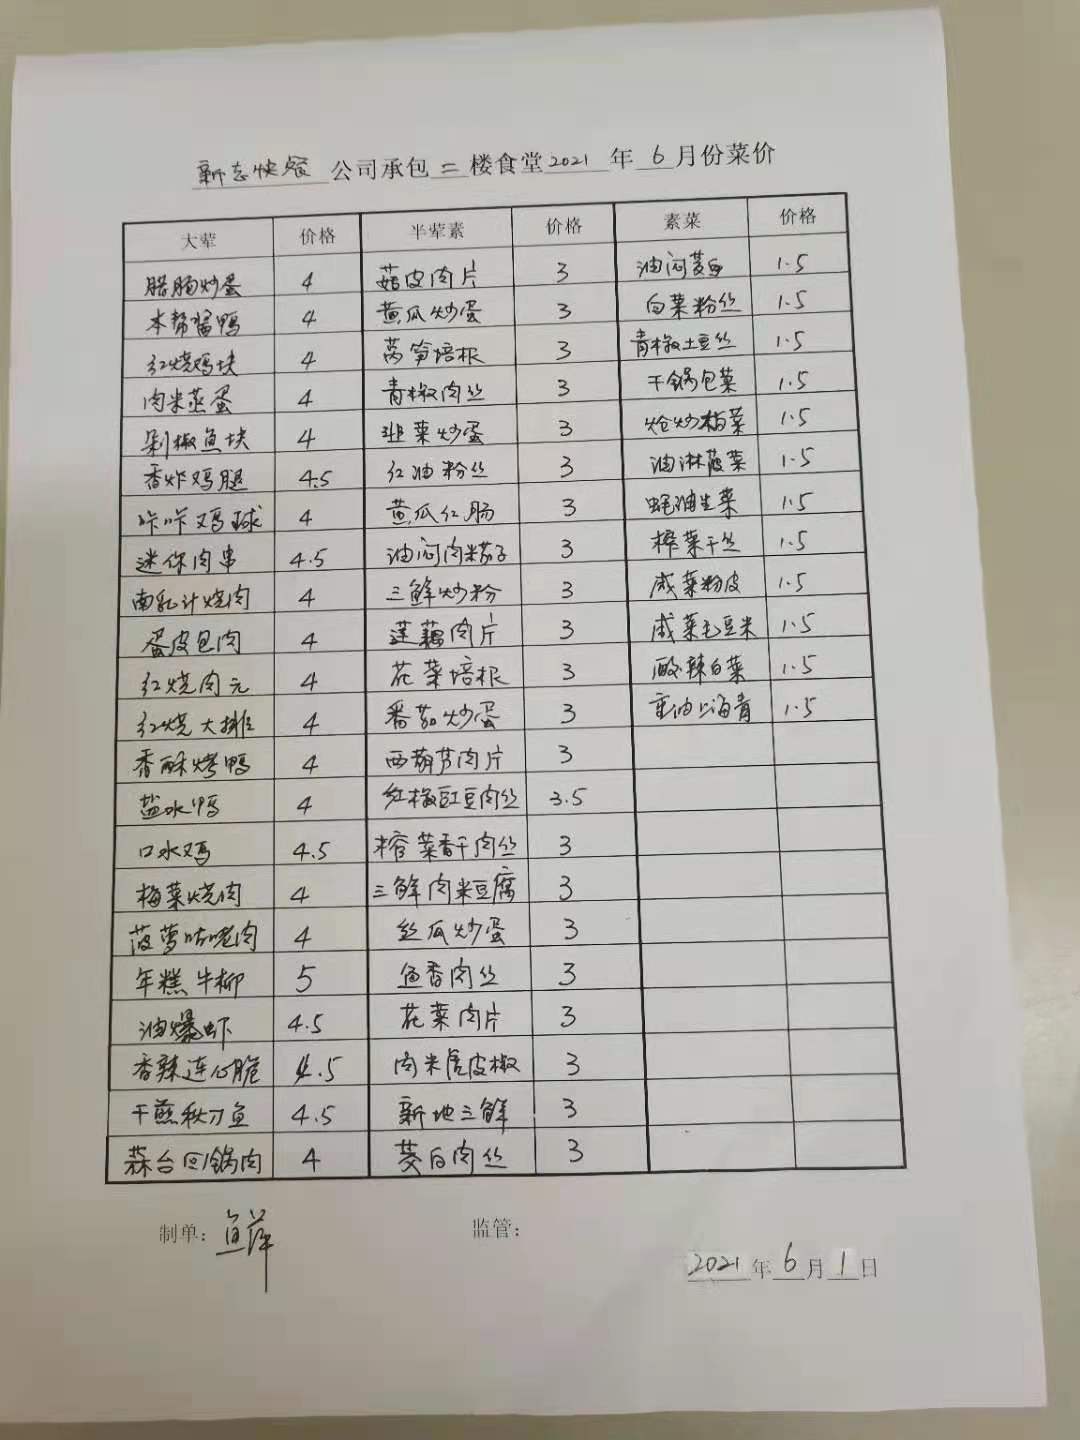 新志快餐 公司承包 二 楼食堂 2021 年 6 月份菜价
大荤 价格 半荤素 价格 素菜 价格
腊肠炒蛋 4 菇皮肉片 3 油闷茭白 1.5
本帮酱鸭 4 黄瓜炒蛋 3 白菜粉丝 1.5
红烧鸡块 4 莴笋培根 3 青椒土豆丝 1.5
肉米蒸蛋 4 青椒肉丝 3 干锅包菜 1.5
剁椒鱼块 4 韭菜炒蛋 3 炝炒梅菜 1.5
香炸鸡腿 4.5 红油粉丝 3 油淋菠菜 1.5
咔咔鸡球 4 黄瓜红肠 3 蚝油生菜 1.5
迷你肉串 4.5 油闷肉米茄子 3 榨菜干丝 1.5
南乳汁烧肉 4 三鲜炒粉 3 咸菜粉皮 1.5
蛋皮包肉 4 莲藕肉片 3 咸菜毛豆米 1.5
红烧肉元 4 花菜培根 3 酸辣白菜 1.5
红烧大排 4 番茄炒蛋 3 重油上海青 1.5
香酥烤鸭 4 西葫芦肉片 3
盐水鸭 4 红椒豇豆肉丝 3.5
口水鸡 4.5 榨菜香干肉丝 3
梅菜烧肉 4 三鲜肉米豆腐 3
菠萝咕咾肉 4 丝瓜炒蛋 3
年糕牛柳 5 鱼香肉丝 3
油爆虾 4.5 花菜肉片 3
香辣连心脆 4.5 肉米虎皮椒 3
干煎秋刀鱼 4.5 新地三鲜 3
蒜台回锅肉 4 茭白肉丝 3
制单： 监管：
2021 年 6 月 1 日